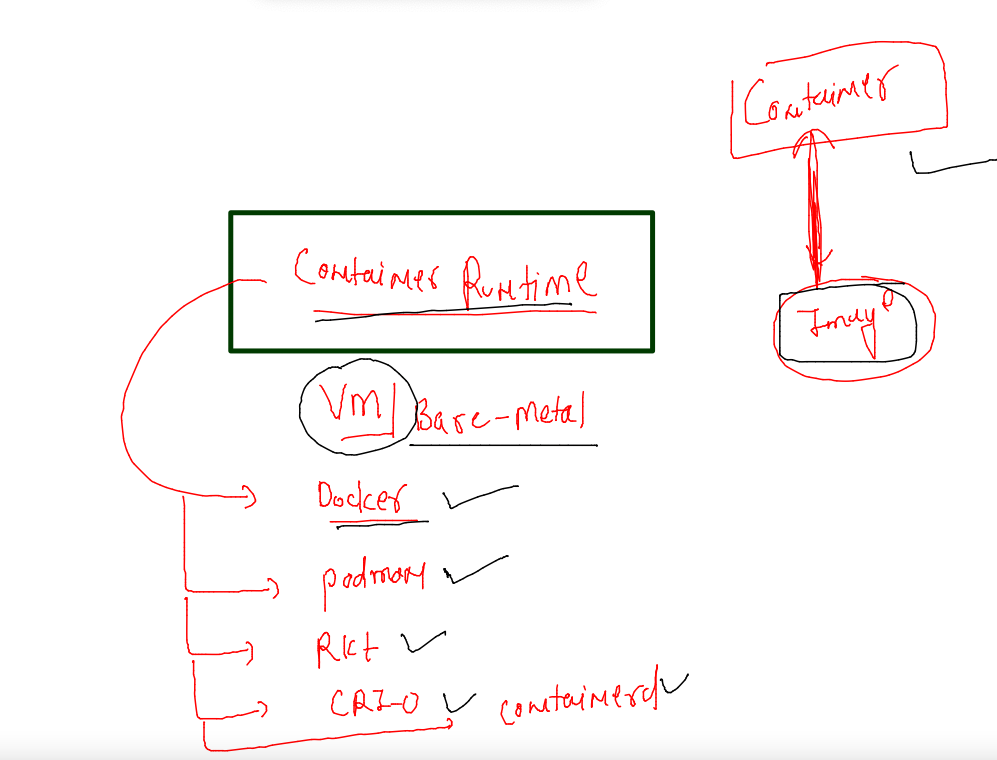 Container
Container Runtime
Image
VM Bare-metal
Docker
podman
Rkt
CRI-O containerd